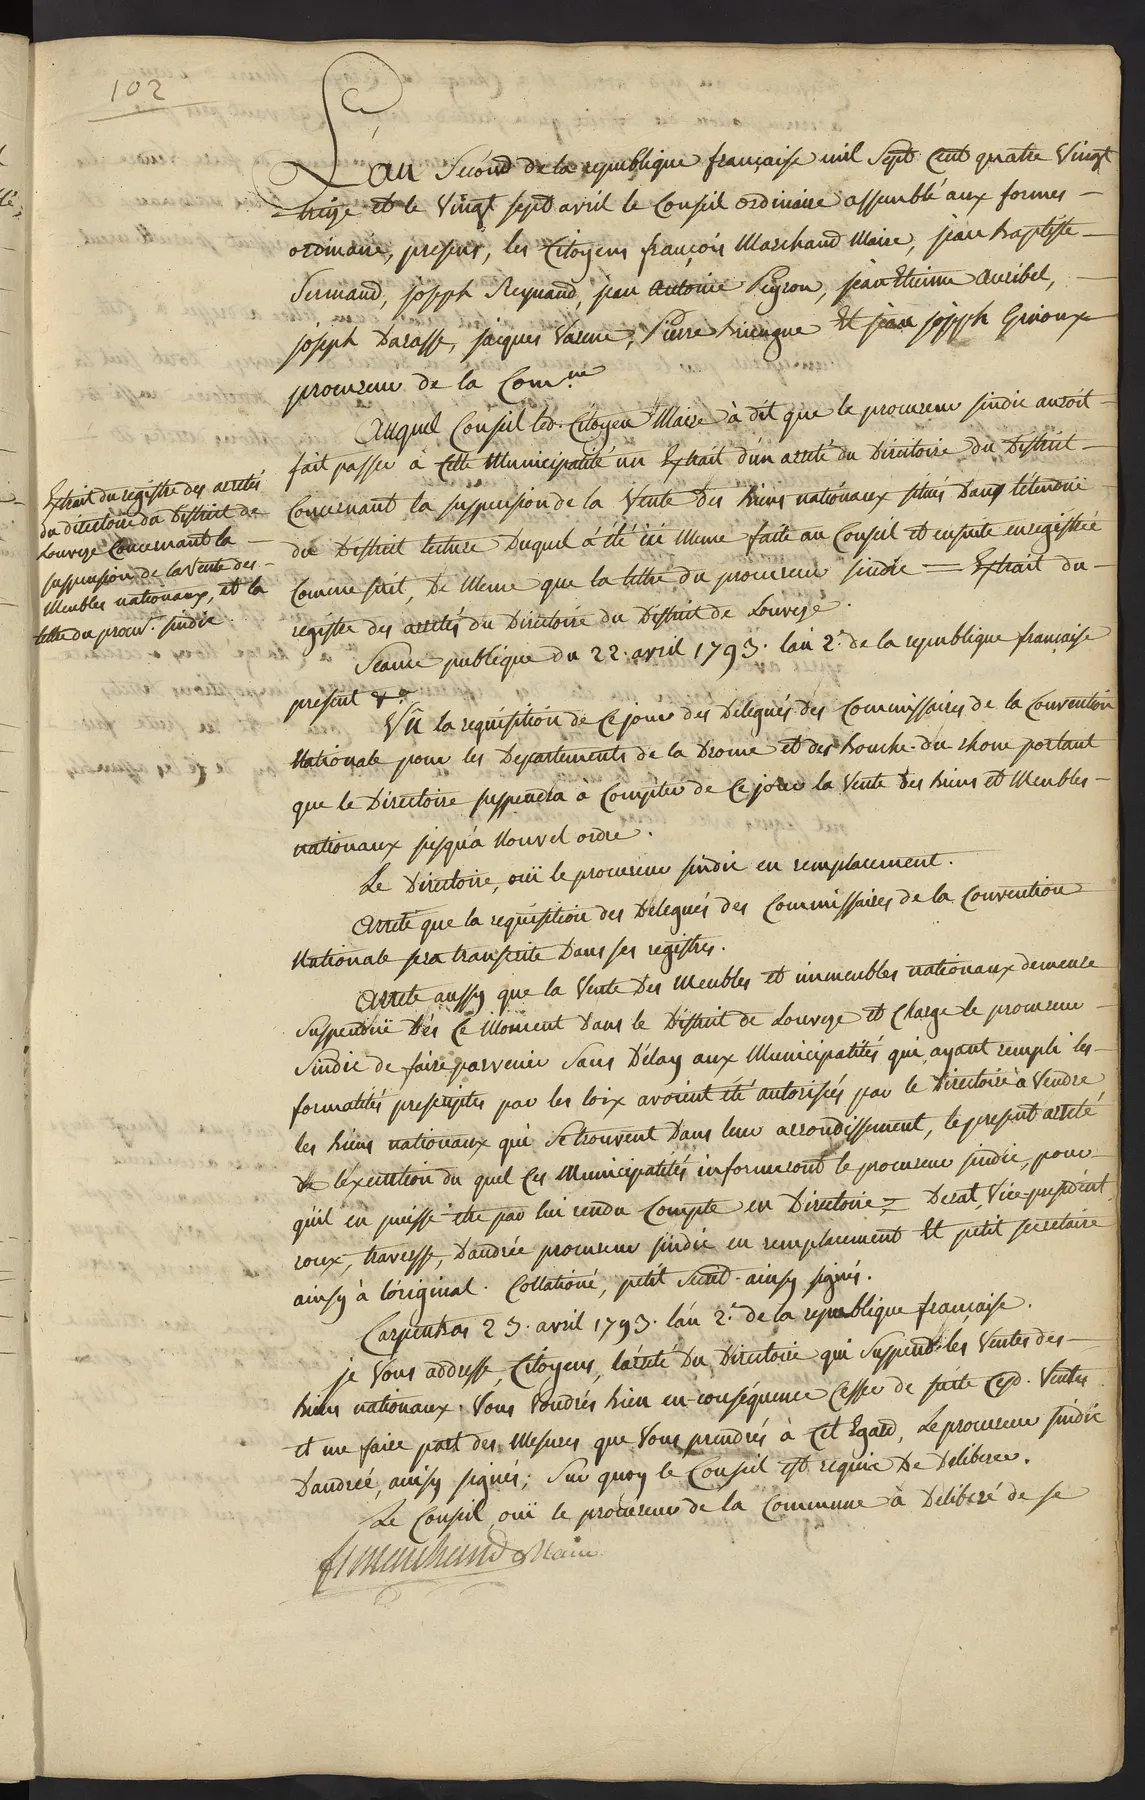 102
L'an Second de la republique française mil Sept Cent quatre Vingt
treize et le Vingt sept avril le Conseil ordinaire assemblé aux formes
ordinaire, presens, les Citoyens françois Marchand Maire, jean baptiste
Sermand, joseph Reynaud, jean Antoine Peyron, jean Etienne Auribel,
joseph Darasse, jacques Varene, Pierre et jean joseph Grivoux
procureur de la Com.ne
Auquel Conseil led. Citoyen Maire à dit que le procureur sindic auroit
fait passer à Cette Municipalité un Extrait d'un arreté du Directoire du District
Concernant la suspension de la Vente des biens nationaux situés Dans l'étendüe
du District lecture Duquel à été ici Meme faite au Conseil et ensuite enregistrée
Comme suit, De Meme que la lettre du procureur sindic = Extrait du
registre des arretés du Directoire du District de Louveze.
Extrait du registre des arretés
du directoire du District de
Louveze Concernant la
suspension de la Vente des
Meubles nationaux, et la
lettre du procur. sindic.
Seance publique du 22. avril 1793. l'an 2.e de la republique française
present &.a
Vû la requisition de Ce jour des Delegués des Commissaires de la Convention
Nationale pour les Departements de la Drome et des bouche-du-rhone portant
que le Directoire suspendra à Compter de Ce jour la Vente des biens et Meubles
nationaux jusqu'à Nouvel ordre.
Le Directoire, oui le procureur sindic en remplacement.
Arrete que la requisition des Delegués des Commissaires de la Convention
Nationale sera transcrite Dans ses registres.
Arrete aussy que la Vente Des Meubles et immeubles nationaux demeure
Suspendüe Dés Ce Moment Dans le District de Louveze et Charge le procureur
Sindic de faire parvenir Sans Délay aux Municipalités qui, ayant rempli les
formalités prescriptes par les loix avoient été autorisés par le Directoire à Vendre
les biens nationaux qui Se trouvent Dans leur arrondissement, le present arreté
de l'éxécution du quel Ces Municipalités informeront le procureur sindic, pour
qu'il en puisse etre par lui rendu Compte en Directoire = Derat, Vice-president,
roux, travesse, Dandrée procureur sindic en remplacement Et petit secretaire
ainsy à l'original. Collationé, petit Secret. ainsy signés.
Carpentras 23. avril 1793. l'an 2.e de la republique française.
je Vous addresse, Citoyens, l'arreté Du Directoire qui Suspend les Ventes des
biens nationaux. Vous Voudrés bien en-conséquence Cesser de suite Cesd. Ventes
et me faire part des Mesures que Vous prendrés à Cet Egard, Le procureur sindic
Dandrée, ainsy signés; Sur quoy le Conseil est requis De Deliberer.
Le Conseil oui le procureur de la Commune à Deliberé de se
fs marchand Maire